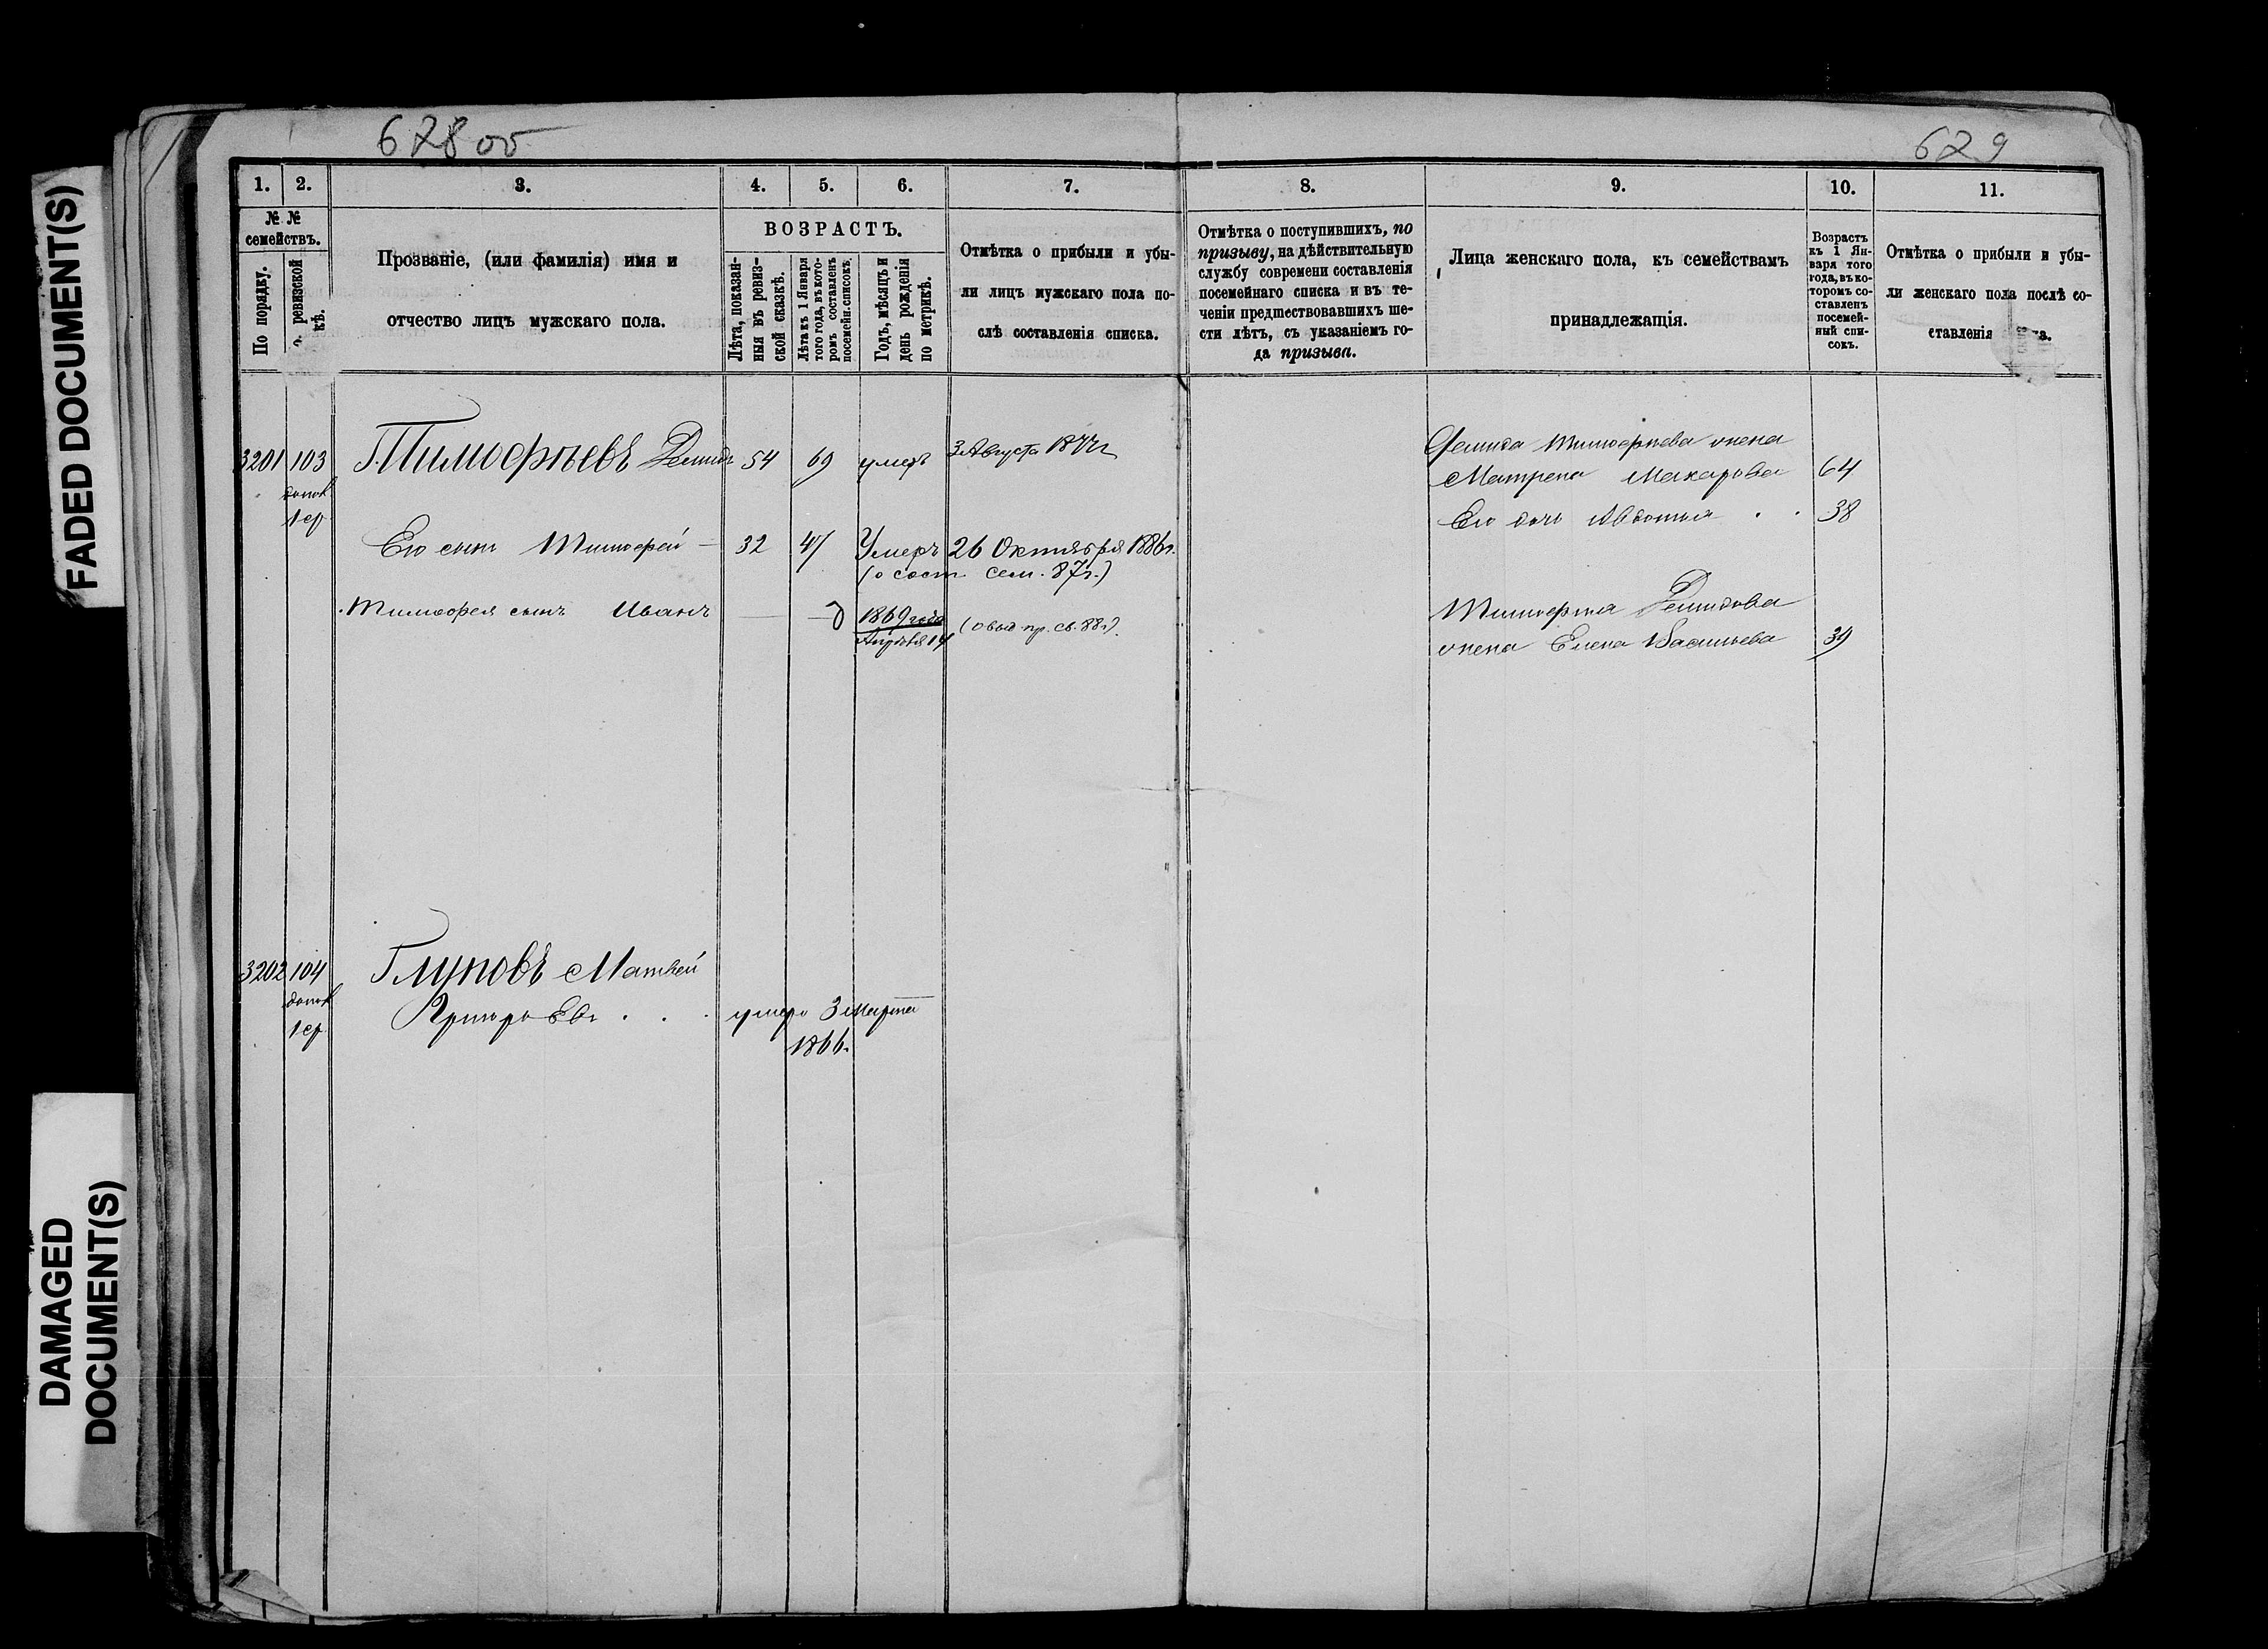 FADED DOCUMENT(S)
DAMAGED
DOCUMENT(S)
628 об
629
1. 2. 3. 4. 5. 6. 7. 8. 9. 10. 11.
№ №
семействъ.
По порядку.
ревизской
кѣ.
Прозваніе, (или фамилія) имя и
отчество лицъ мужскаго пола.
ВОЗРАСТЪ.
Лѣта, показан-
ныя въ ревиз-
ской сказкѣ.
Лѣта къ 1 Января
того года, въ кото-
ромъ составленъ
посемейн. списокъ
Годъ, мѣсяцъ и
день рожденія
по метрикѣ.
Отмѣтка о прибыли и убы-
ли лицъ мужскаго пола по-
слѣ составленія списка.
Отмѣтка о поступившихъ, по
призыву, на дѣйствительную
службу современи составленія
посемейнаго списка и въ те-
ченіи предшествовавшихъ ше-
сти лѣтъ, съ указаніемъ го-
да призыва.
Лица женскаго пола, къ семействамъ
принадлежащія.
Возрастъ
къ 1 Ян-
варя того
года, въ ко-
торомъ со-
ставленъ
посемей-
ный спи-
сокъ.
Отмѣтка о прибыли и убы-
ли женскаго пола послѣ со-
ставленія
3201 103 Тимофѣевъ Демидъ 54 69 умеръ 3 Августа 1877г
1 ср
Демида Тимофѣева жена
Матрена Макарова 64
Его дочь Авдотья . . 38
Его сынъ Тимофей — 32 47 Умеръ 26 Октября 1886г.
(о сост. сем. 87г.)
Тимофея сынъ Иванъ — 1869 года (о выд. пр. св. 88г).
Апрѣля 14
Тимофея Демидова
жена Елена Васильева 39
3202 104 Глуповъ Матвей
Григорьевъ . . . умеръ 3 марта
1 ср
1866г